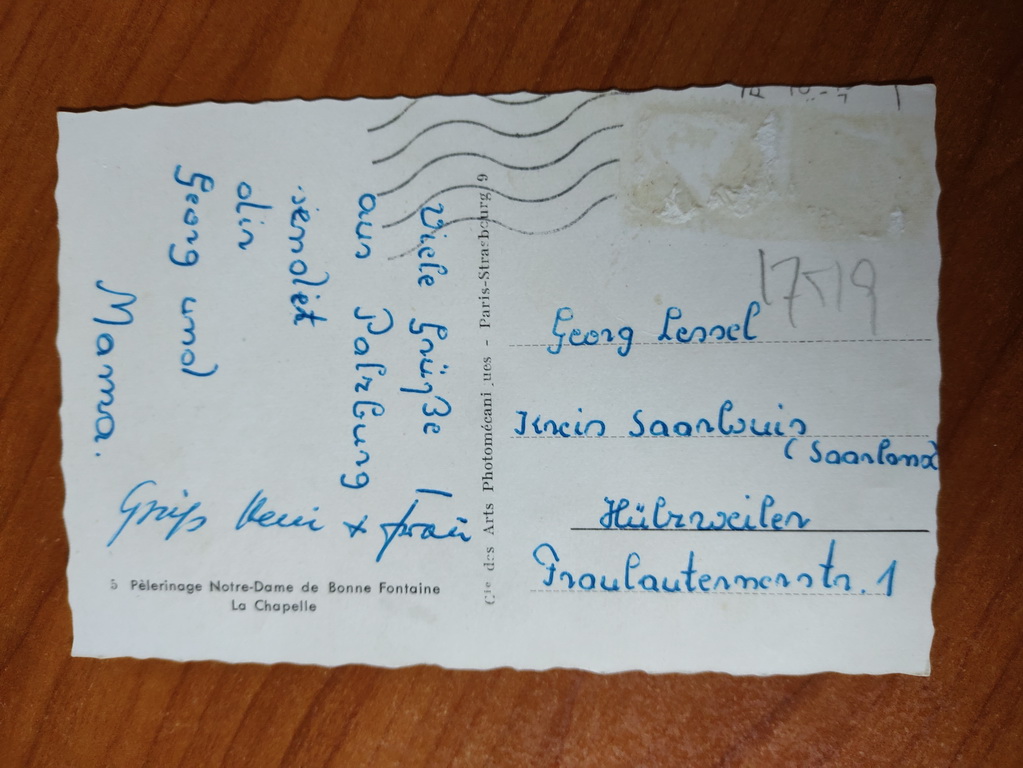 Viele Grüße
aus Palzburg
sendet
dir
Georg und
Mama.
Gruß
+ Frau
5 Pèlerinage Notre-Dame de Bonne Fontaine
La Chapelle
Cie des Arts Photomécani ues - Paris-Strasbourg 9
17519
Georg Lessel
Kreis Saarlouis
(Saarland
Hülzweiler
Fraulauternerstr. 1